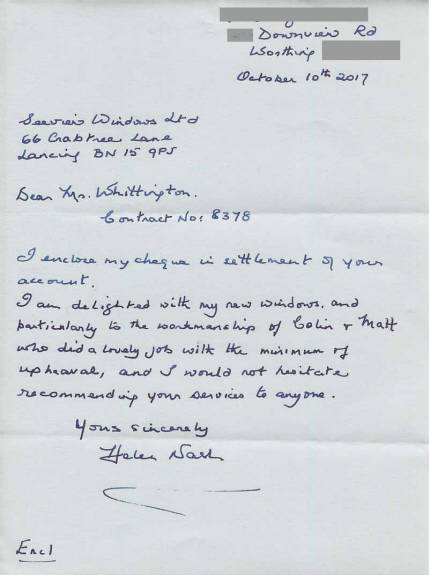 Downview Rd
Worthing
October 10th 2017
Seaview Windows Ltd
66 Crabtree Lane
Lancing BN15 9PJ
Dear Mr. Whittington.
Contract No: 8378
I enclose my cheque in settlement of your
account.
I am delighted with my new windows, and
particularly to the workmanship of Colin & Matt
who did a lovely job with the minimum of
upheaval, and I would not hesitate
recommending your services to anyone.
Yours sincerely
Helen Nash
Encl